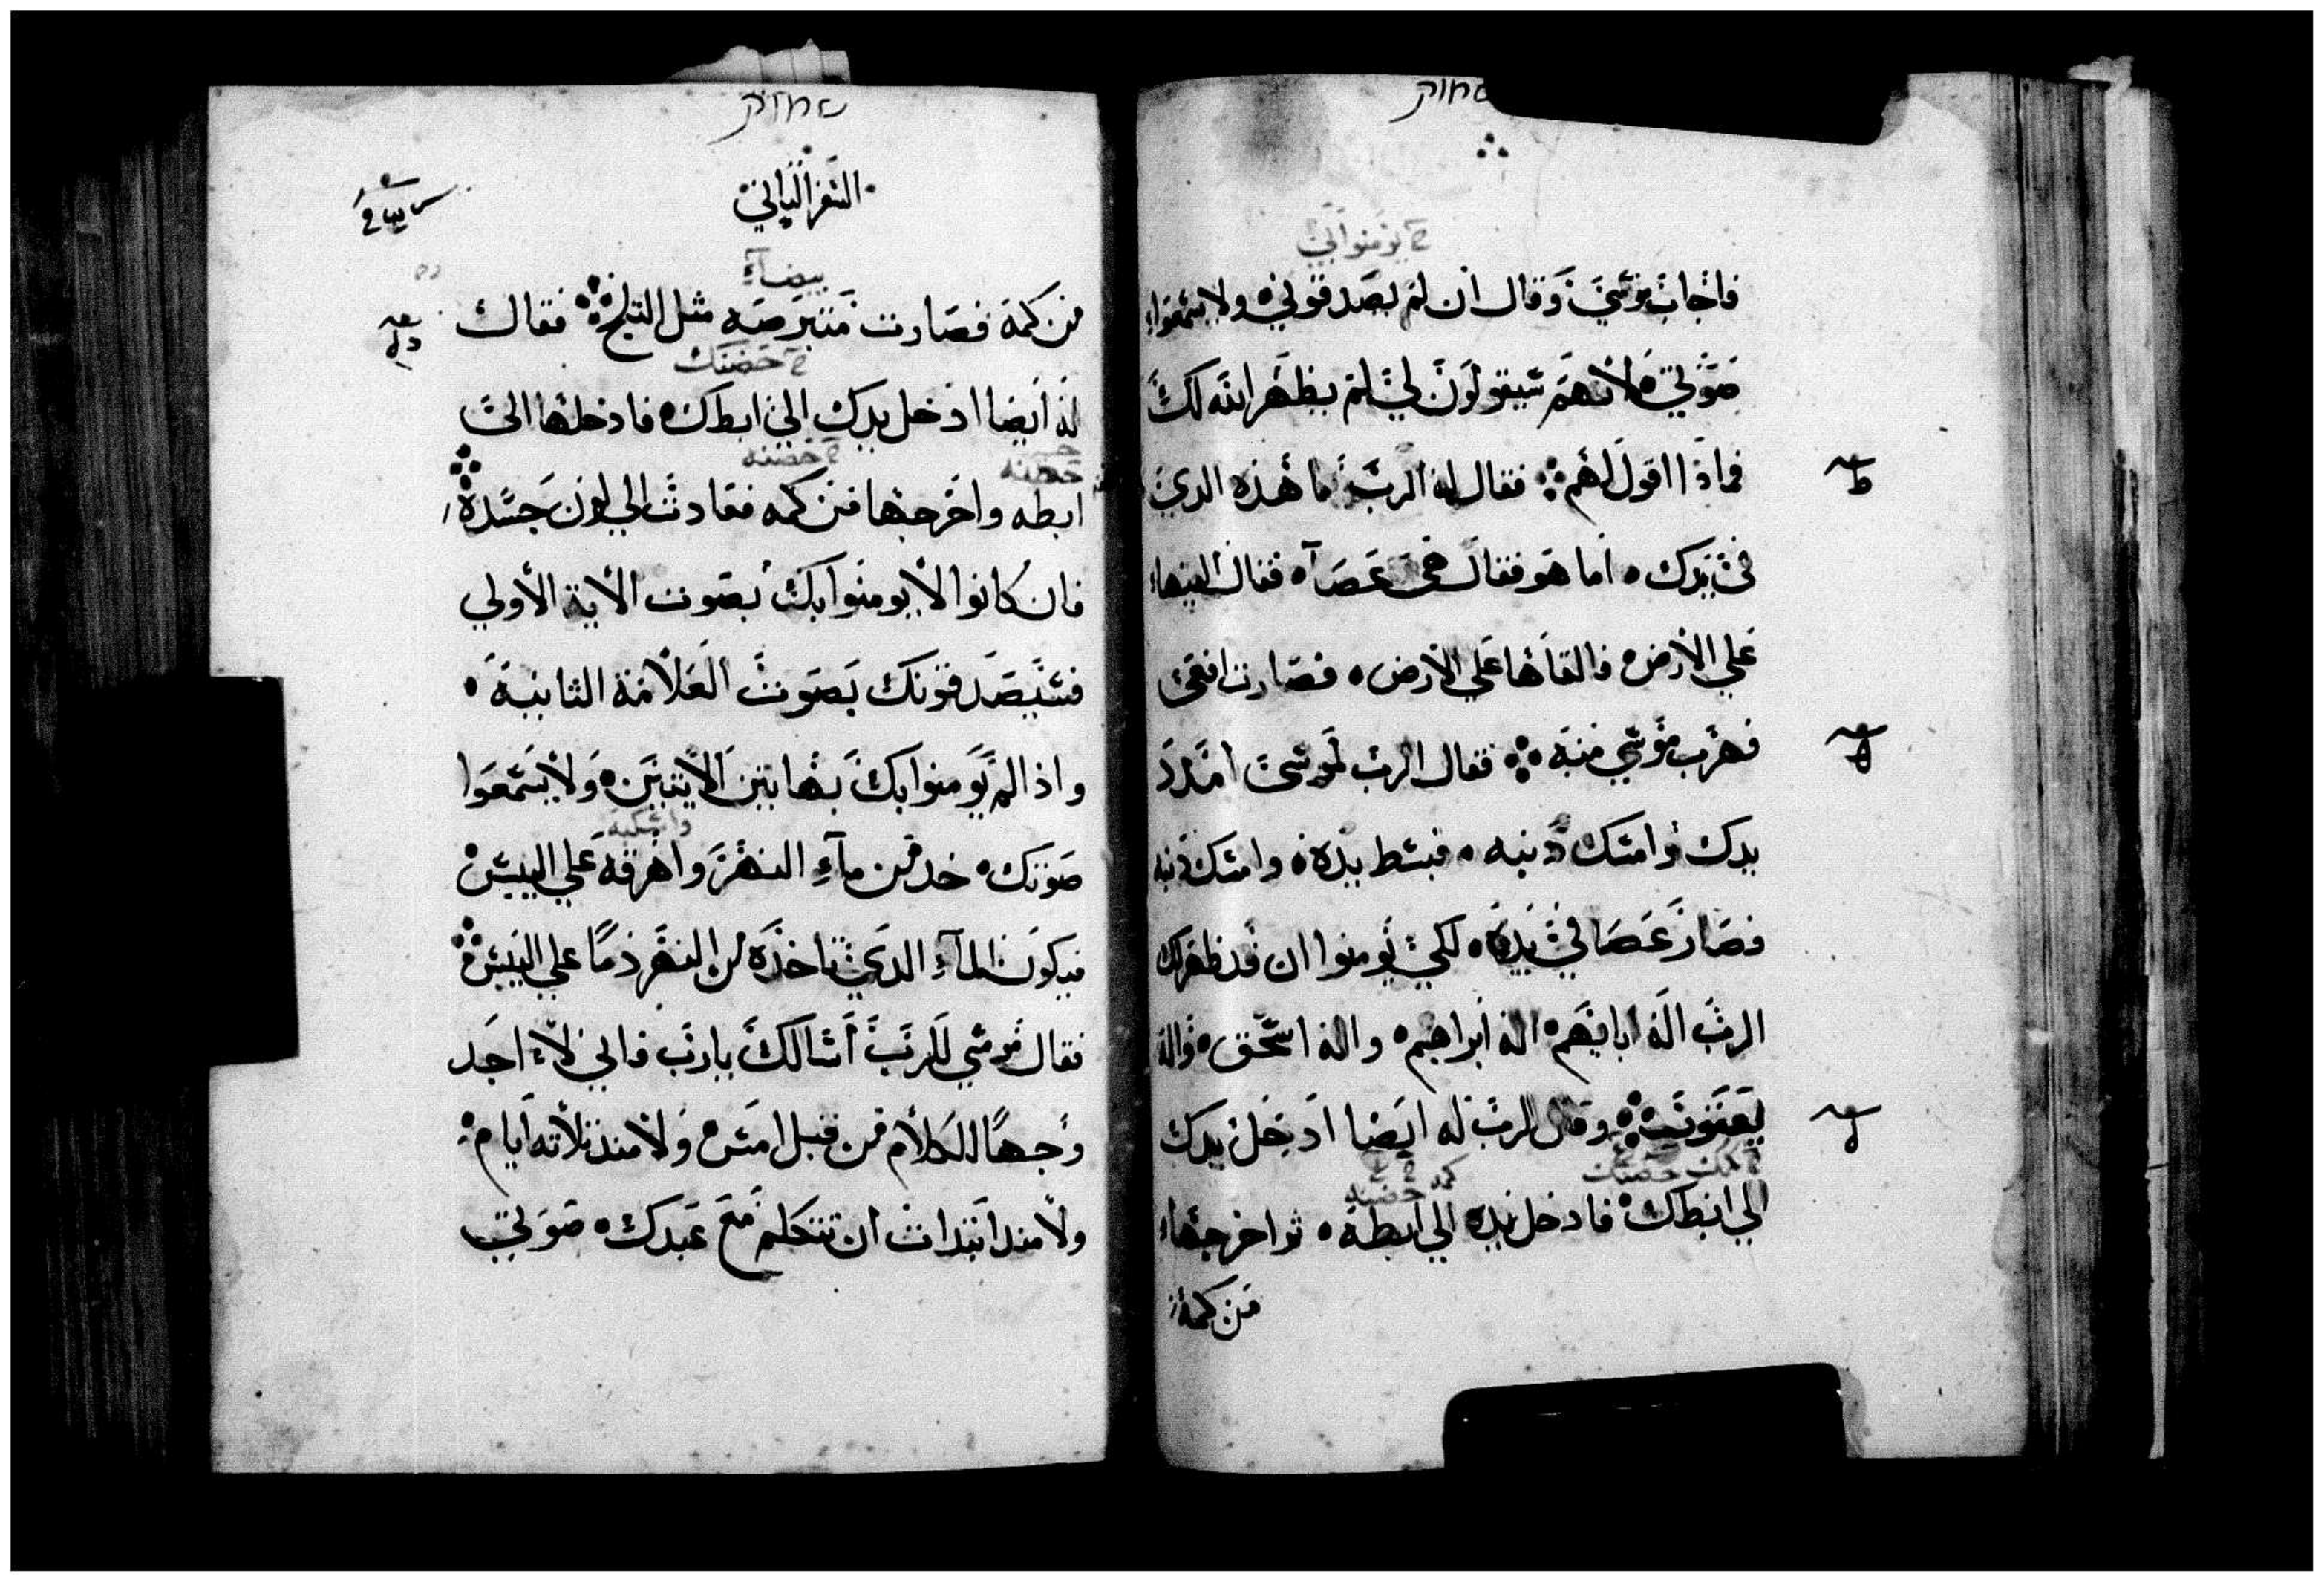 שמות
ﺡ يومنوا بي
فاجاب موسي وقال ان لم يصدقوني ولا يسمعوا
صوتي لانهم سيقولون لي لم يظهر الله لك
فماذا اقول لهم فقال له الرب ما هذه الدي
في يدك اما هو فقال هي عصاه فقال القيها
علي الارض فالقاها علي الارض فصارت افعي
فهرب موسي منه فقال الرب لموسي امدد
يدك وامسك دنبه فبسط يده وامسك دنبه
فصار عصا في يده لكي يومنوا ان قد ظهر لك
الرب اله ابايهم اله ابراهيم واله اسحق واله
يعقوب وقال الرب له ايضا ادخل يدك
حضنك
كمه حضنه
الي ابطك فادخل يده الي ابطه ثم اخرجها
من كمه
שמות
السفر الثاني
بيضاء
من كمه فصارت متبرصه مثل الثلج فقال
حضنك
له ايضا ادخل يدك الي ابطك فادخلها الي
حضنه
حضنه
ابطه واخرجها من كمه فعادت الي لون جسده
فان كانوا لا يومنوا بك بصوت الاية الاولي
فسيصدقونك بصوت العلامة الثانية
واذا لم يومنوا بك بهاتين الايتين ولا يسمعوا
واسكبه
صوتك خد من مآء النهر واهرقه علي اليبس
فيكون المآء الدي تاخده من النهر دما علي اليبس
فقال موسي للرب أسالك يارب فاني لا اجد
وجها للكلام من قبل امس ولا مند ثلاثه ايام
ولا مند ابتدات ان تتكلم مع عبدك صوتي